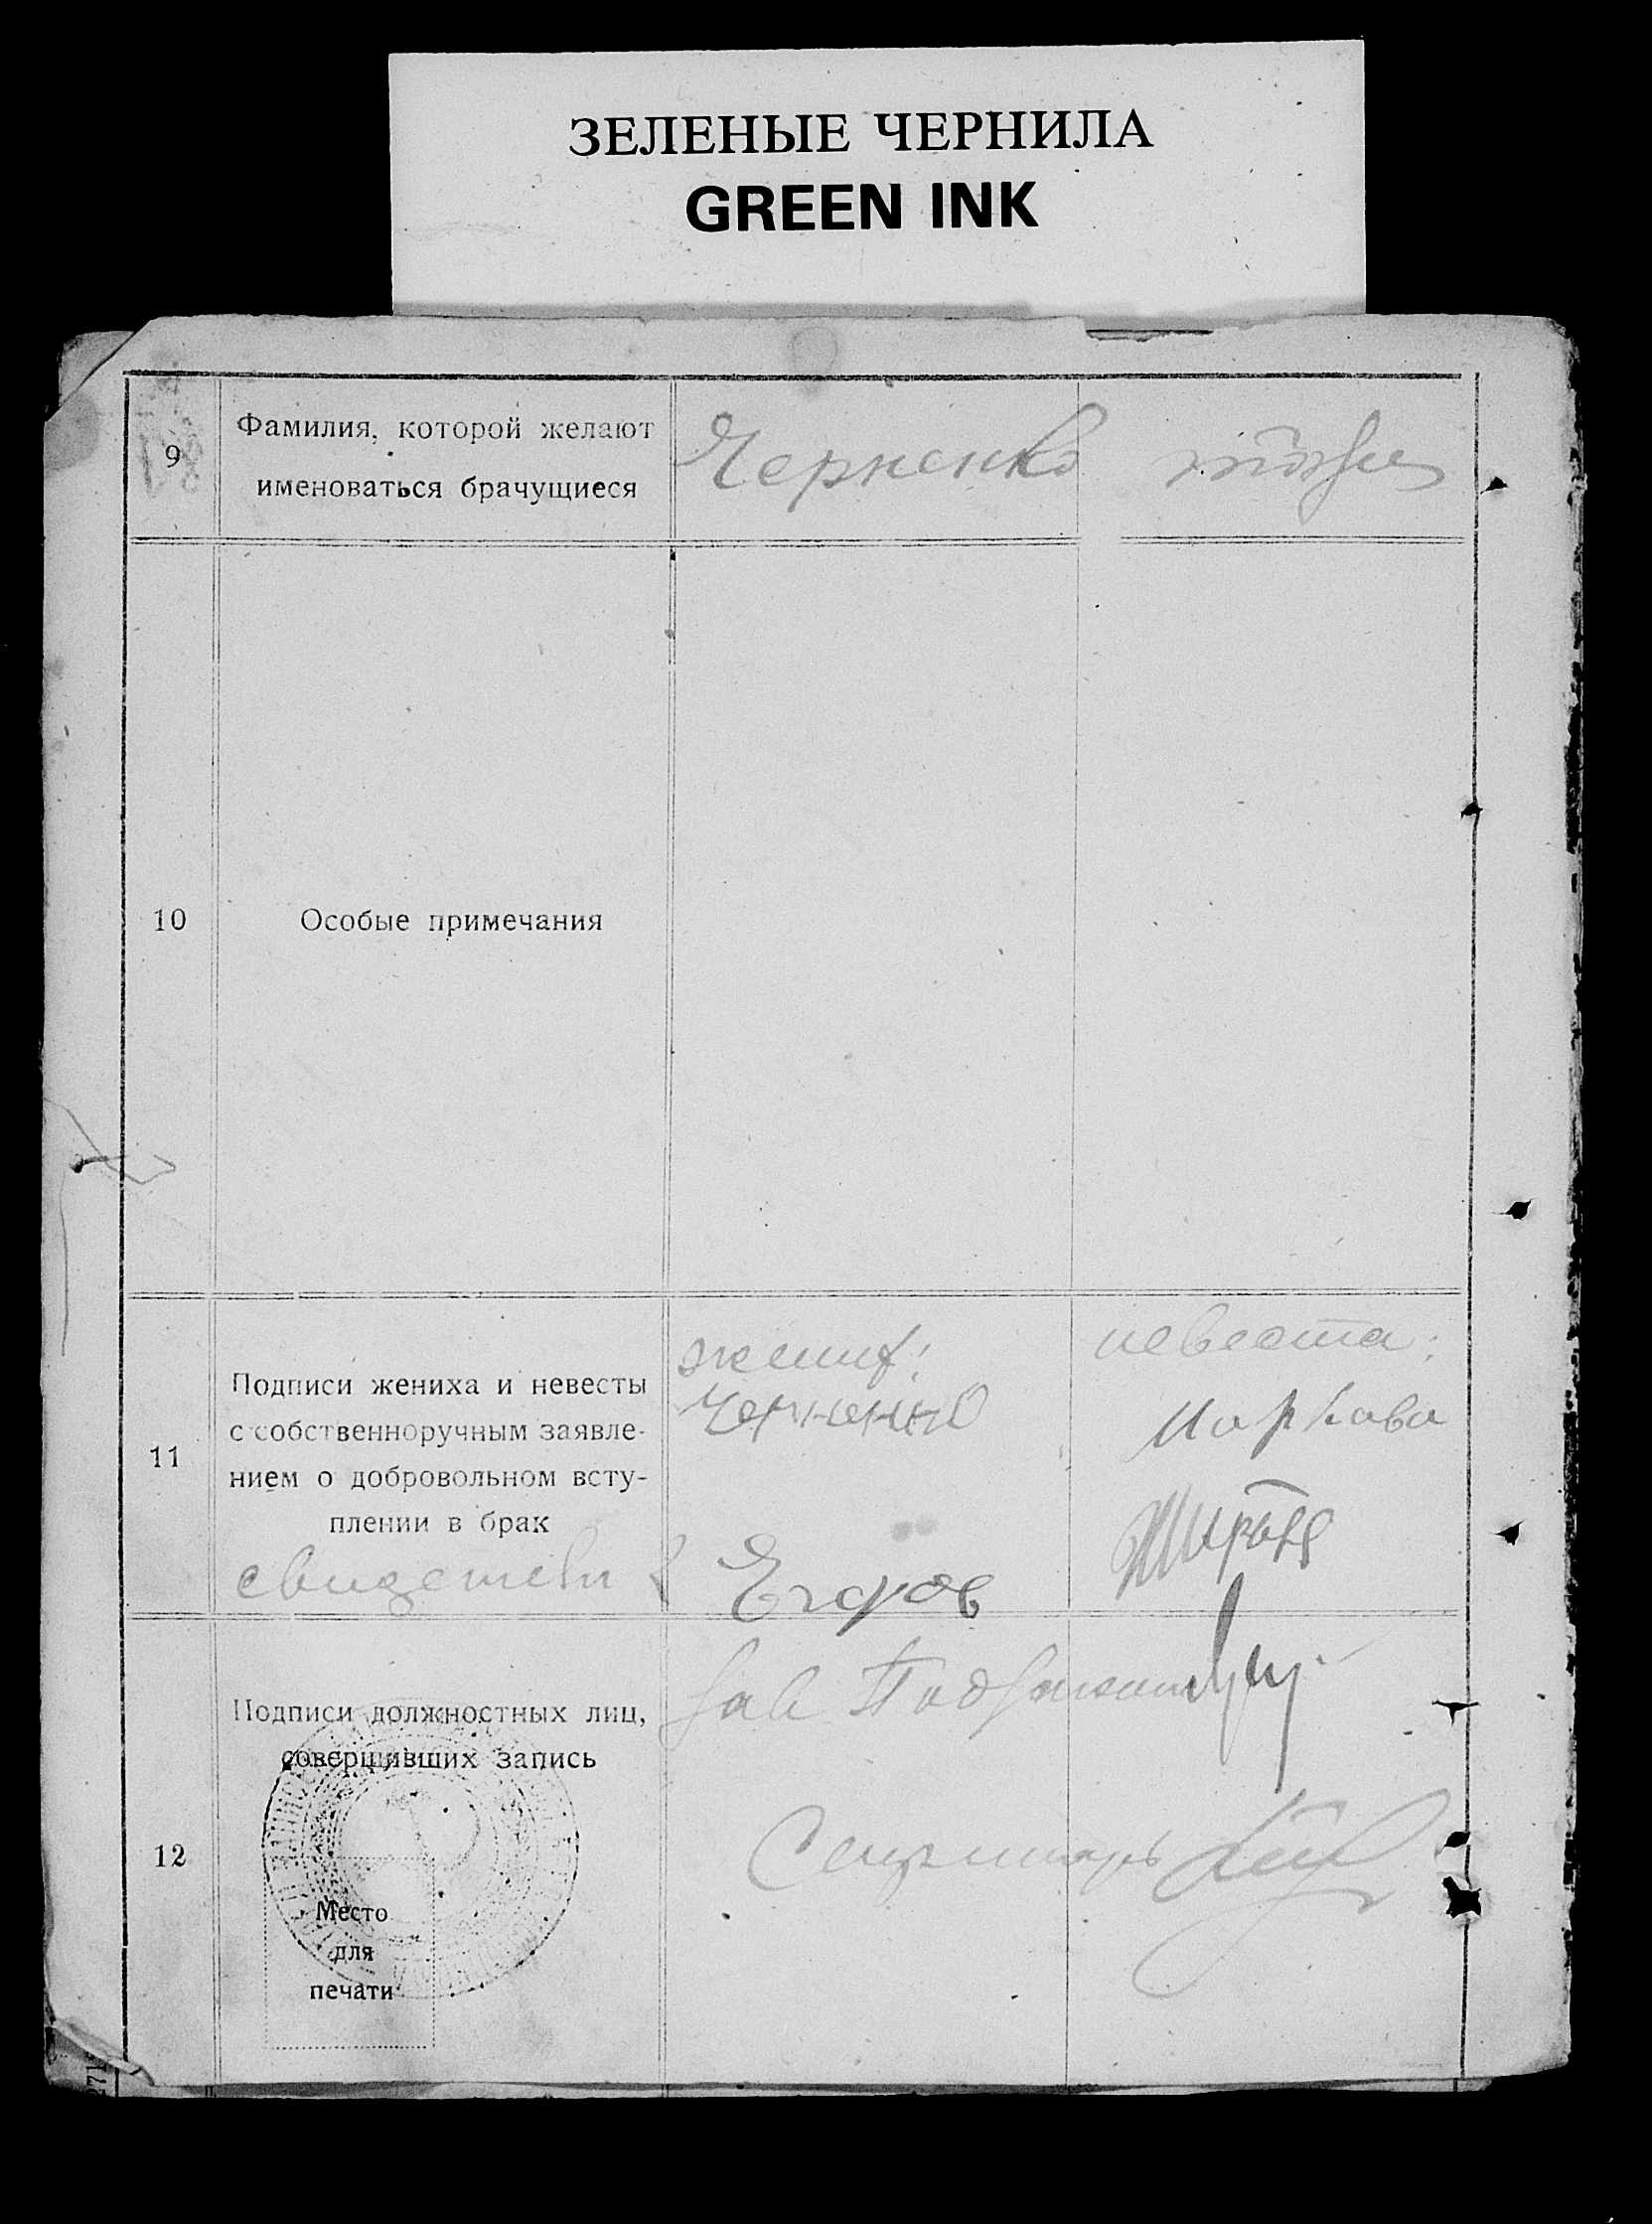 ЗЕЛЕНЫЕ ЧЕРНИЛА
GREEN INK
9
Фамилия, которой желают
именоваться брачущиеся
Черненко
тоже
10
Особые примечания
11
Подписи жениха и невесты
с собственноручным заявле-
нием о добровольном всту-
плении в брак
свидетели
жених:
Черненко
Егоров
невеста:
Маркова
12
Подписи должностных лиц,
совершивших запись
Место
для
печати
Зав
Секретарь